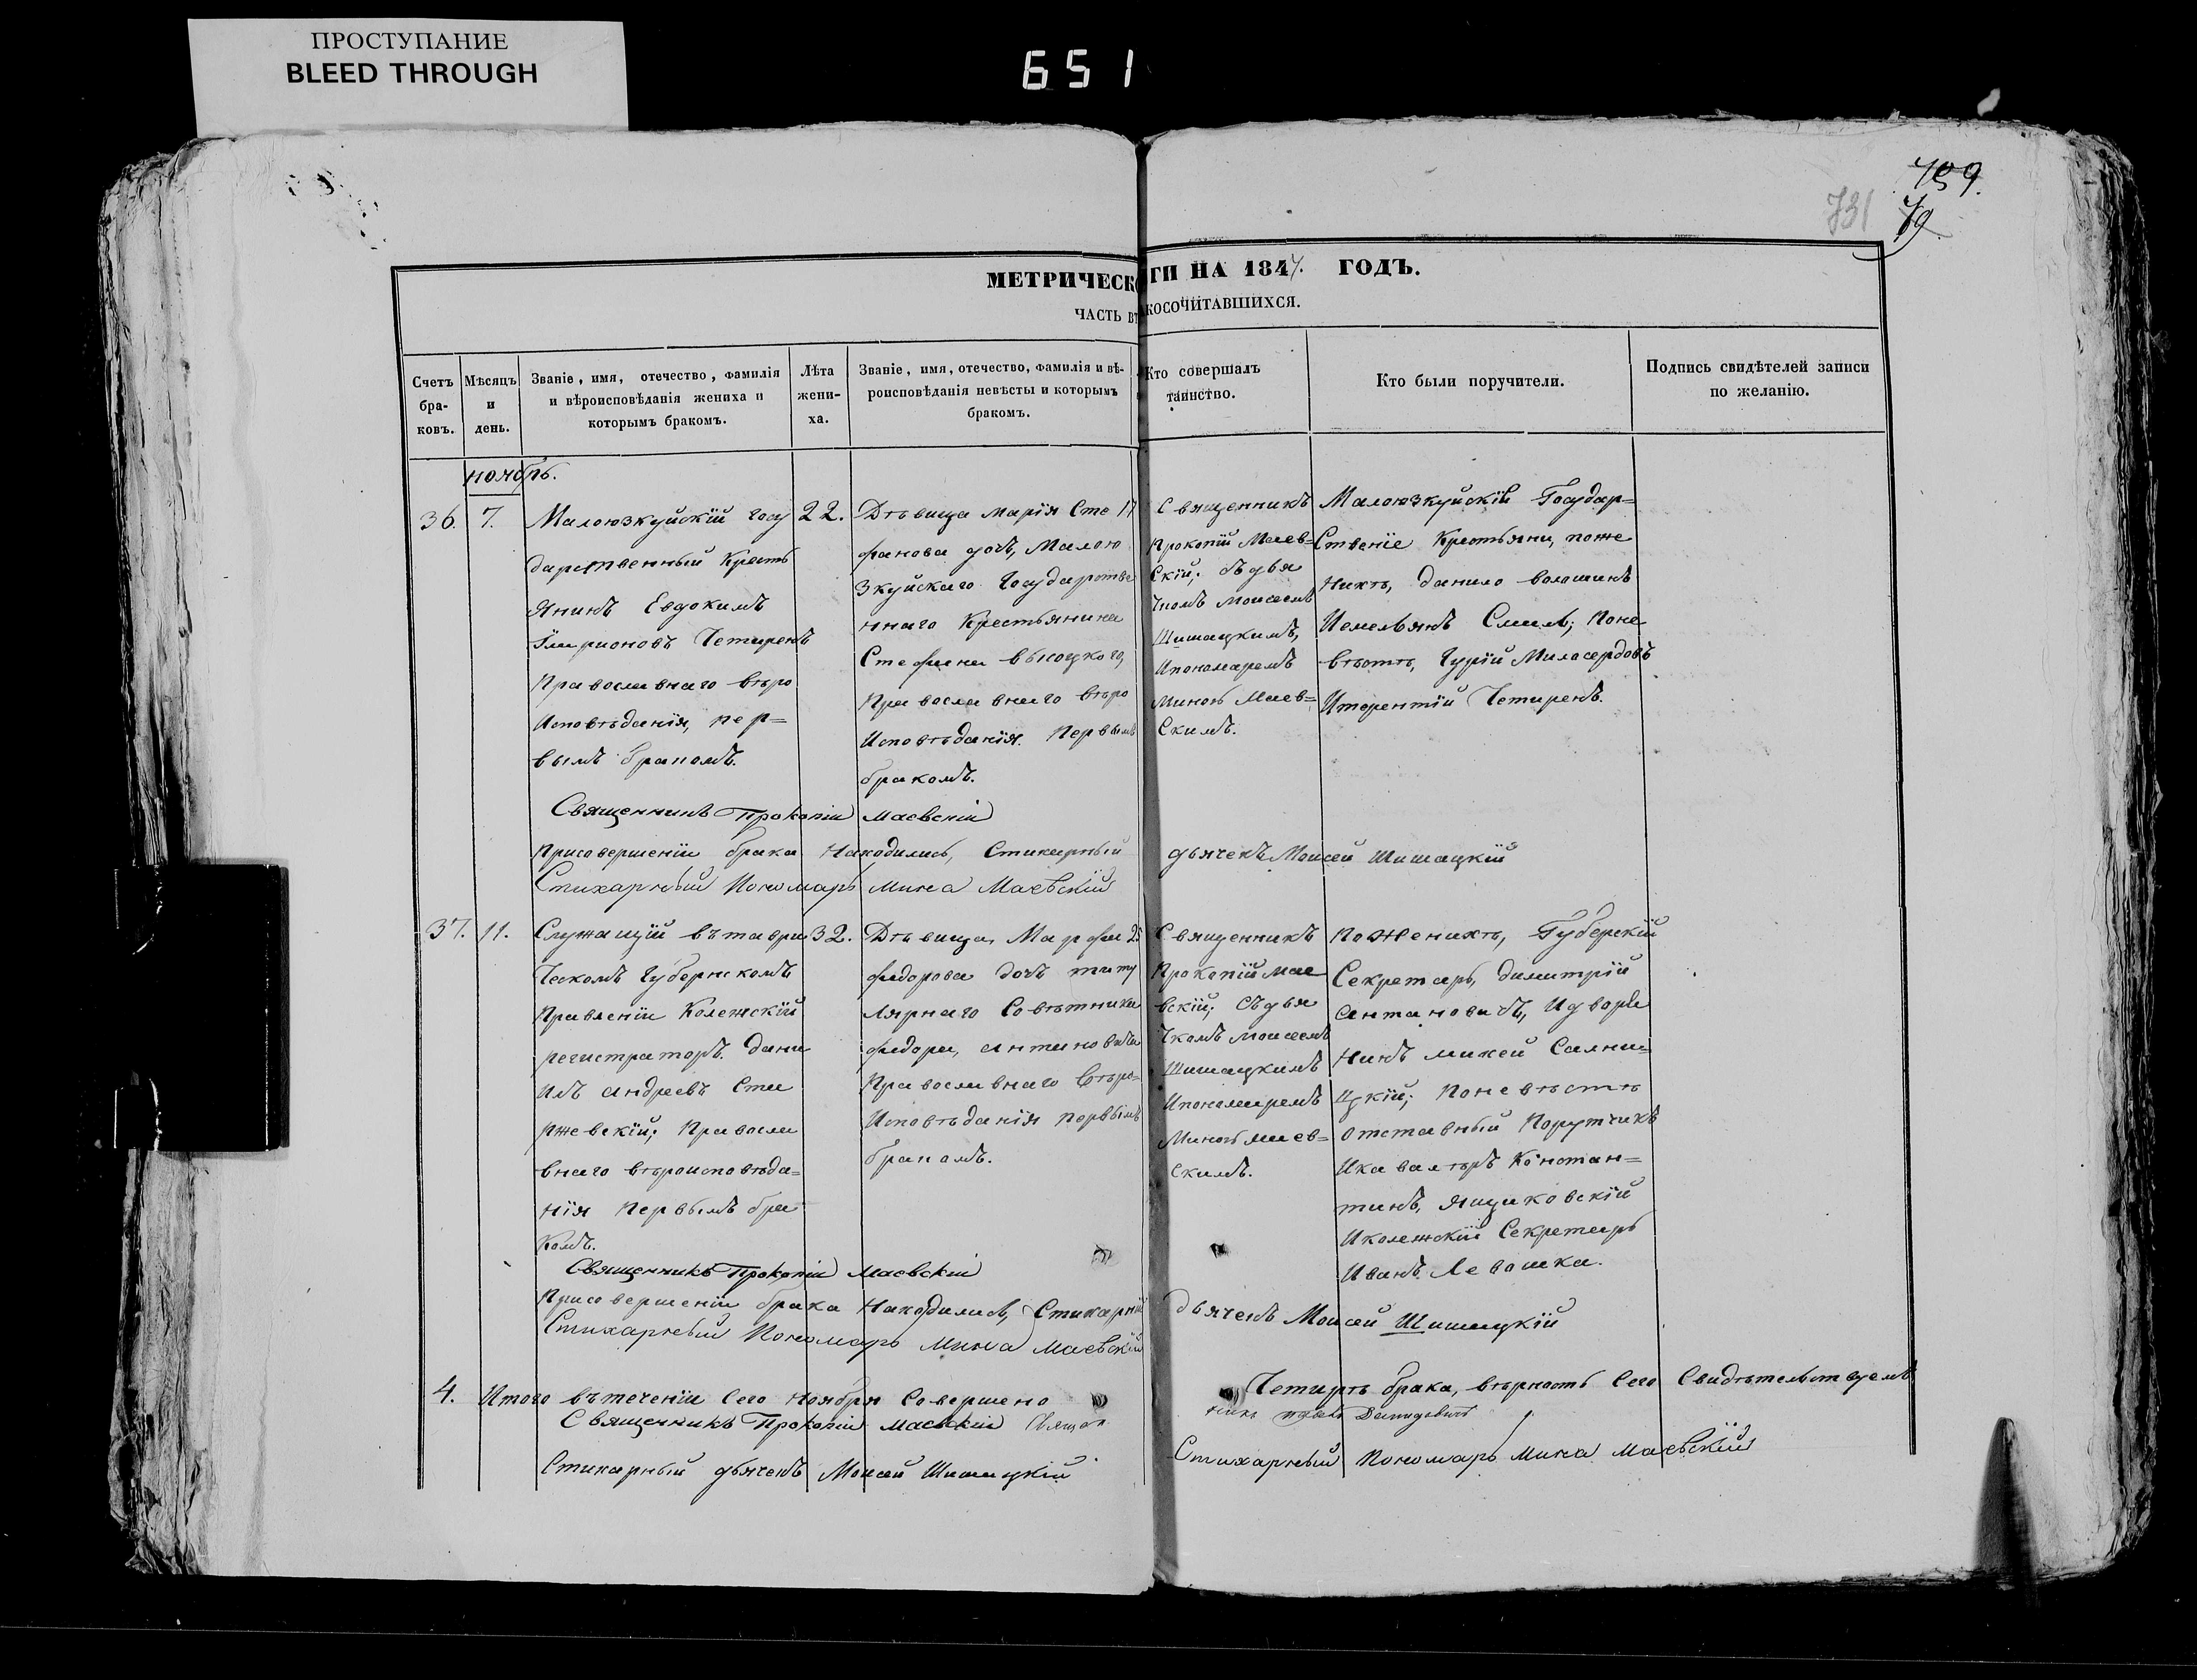 ПРОСТУПАНИЕ
BLEED THROUGH
651
759.
79
731
МЕТРИЧЕСК ГИ НА 1847. ГОДЪ.
ЧАСТЬ ВТ КОСОЧИТАВШИХСЯ.
Счетъ бра-ковъ.
Мѣсяцъ и день.
Званіе, имя, отечество, фамилія и вѣроисповѣданія жениха и которымъ бракомъ.
Лѣта жени-ха.
Званіе, имя, отечество, фамилія и вѣ-роисповѣданія невѣсты и которымъ бракомъ.
Кто совершалъ таинство.
Кто были поручители.
Подпись свидѣтелей записи по желанію.
ноябрь.
36.
7.
Малоюзкуйскій госу
дарственный Кресть
Янинъ Евдокимъ
Четиренъ
Православнаго вѣро
Исповѣданія, пер=
вымъ бракомъ.
22.
Дѣвица Марія Сте
фанова дочь, Малою
Зкуйскаго Государстве
ннаго Крестьянина
Стефана Высоцкого,
Православнаго вѣро
Исповѣданія. Первымъ
бракомъ.
17
Священникъ
Прокопій Маев=
Скій; Съдья
Чкомъ Моисеемъ
Шишацкимъ,
Ипономаремъ
Миною Маев=
Скимъ.
Малоюзкуйскій Государ=
Ственіе Крестьяни, поже
Нихѣ, данило волошинъ
Иемельянъ Смиль; Поне
вѣстѣ, Гурій Миласердовъ
Итерентій Четиренъ.
Священникъ Прокопій Маевскій
Присовершеніи брака Находились, Стихарный дьячекъ Моисей Шишацкій
Стихарный Пономарь Мина Маевскій
37.
11.
Служащій вътаври
Ческомъ Губернскомъ
Правленіи Колежскій
регистраторъ. Дани
илъ Андреевъ Ста
ржевскій; Правосла
внаго вѣроисповѣда=
нія Первымъ бра
Комъ.
32.
Дѣвица, Марфа
федорова дочь титу
лярнаго Совѣтника
федора, Антановича
Православнаго Вѣро=
Исповѣданія первымъ
бракомъ.
25
Священникъ
Прокопій Мае
вскій; Съдья
Чкомъ Моисеемъ
Шишацкимъ
Ипономаремъ
Миною маев=
Скимъ.
поЖенихѣ, Губерскій
Секретарь, димитрій
Антановичъ, Идворя
Нинъ микей Сални=
Цкій; Поневѣстѣ
Отставный Порутчикъ
Икавалѣръ Констан=
тинъ, Ящиковскій
Иколежскій Секретарь
Иванъ Левошка.
Священникъ Прокопій Маевскій
Присовершеніи брака Находились, Стихарній дьячекъ Моисей Шишацкій
Стихарный Пономарь Мина Маевскій
4.
Итого вътеченіи Сего Ноября Совершено Четирѣ брака, вѣрность Сего Свидѣтельствуемъ
Священникъ Прокопій Маевскій Священ никъ Давидовичъ
Стихарный дьячекъ Моисей Шишацкій Стихарный Пономарь Мина Маевскій